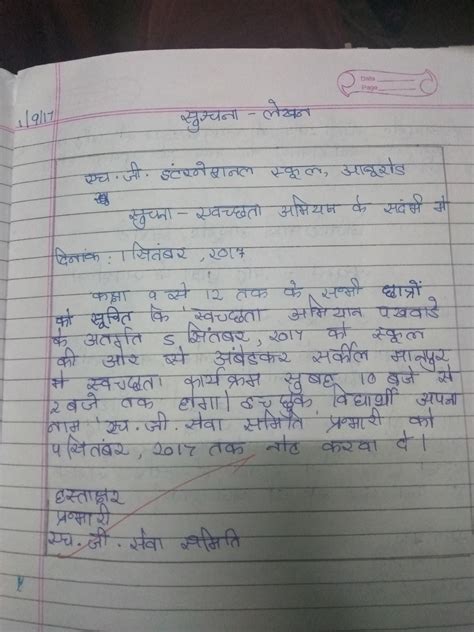 Date
Page
1/9/17
सुचना - लेखन
एच. जी. इंटरनेशनल स्कूल, आबूरोड
सुचना - स्वच्छता अभियान के संदर्भ में
दिनांक : 1 सितंबर, 2017
कक्षा 9 से 12 तक के सभी छात्रों
को सूचित कि स्वच्छता अभियान पखवाडे
के अंतर्गत 5 सितंबर, 2017 को स्कूल
की ओर से अंबेडकर सर्कील मानपुर
में स्वच्छता कार्यक्रम सुबह 10 बजे से
2 बजे तक होगा। इच्छुक विद्यार्थी अपना
नाम एच. जी. सेवा समिति प्रभारी को
4 सितंबर, 2017 तक नोट करवा दे।
हस्ताक्षर
प्रभारी
एच. जी. सेवा समिति